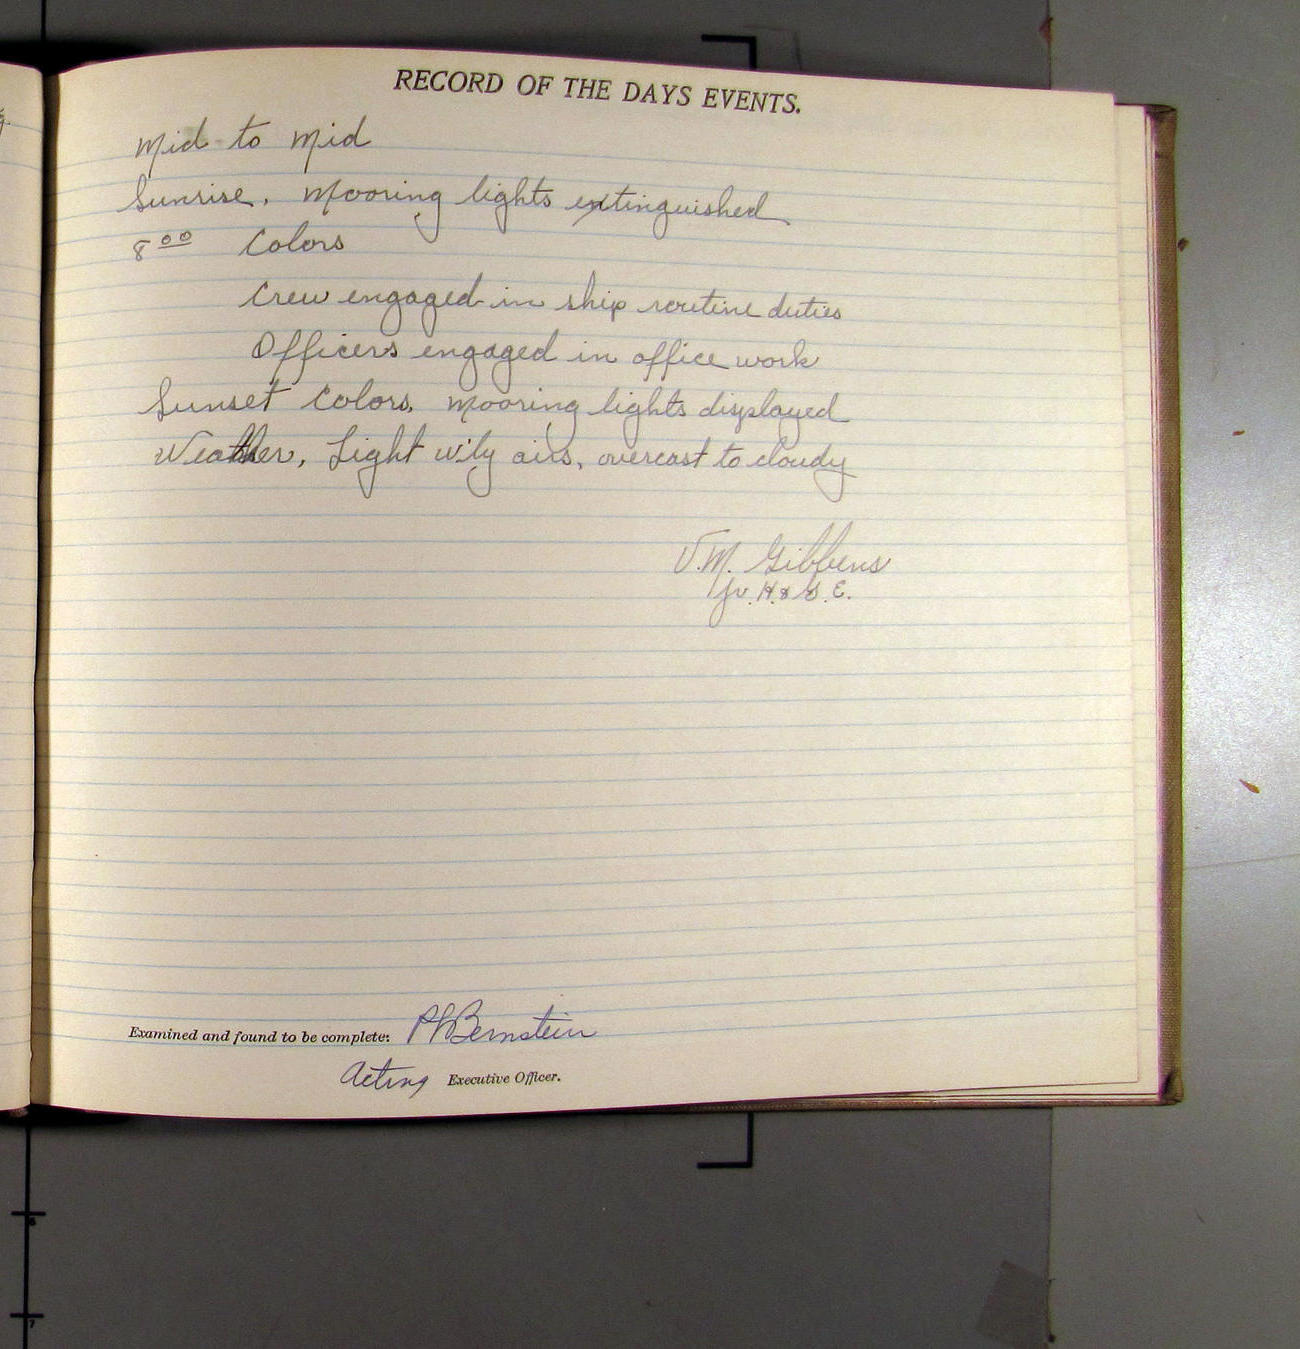 RECORD OF THE DAYS EVENTS.
Mid to Mid
Sunrise, Mooring lights extinguished
8⁰⁰ Colors
Crew engaged in ship routine duties
Officers engaged in office work
Sunset Colors, Mooring lights displayed
Weather, Light w'ly airs, overcast to cloudy
V.M. Gibbens
Jr. H. & G. E.
Examined and found to be complete: PLBernstein
Acting Executive Officer.
6
7